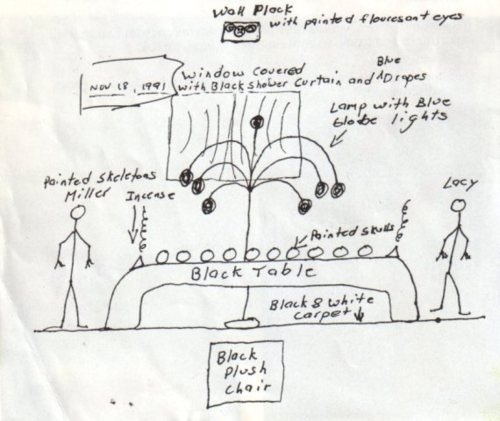 Wall Plack
with painted flouresant eyes
Nov 18, 1991
Window Covered
Blue
with Black shower Curtain and Drapes
Lamp with Blue
globe lights
Painted Skeletons
Miller
Incense
Lacy
Painted skulls
Black Table
Black & white
carpet
Black
Plush
Chair